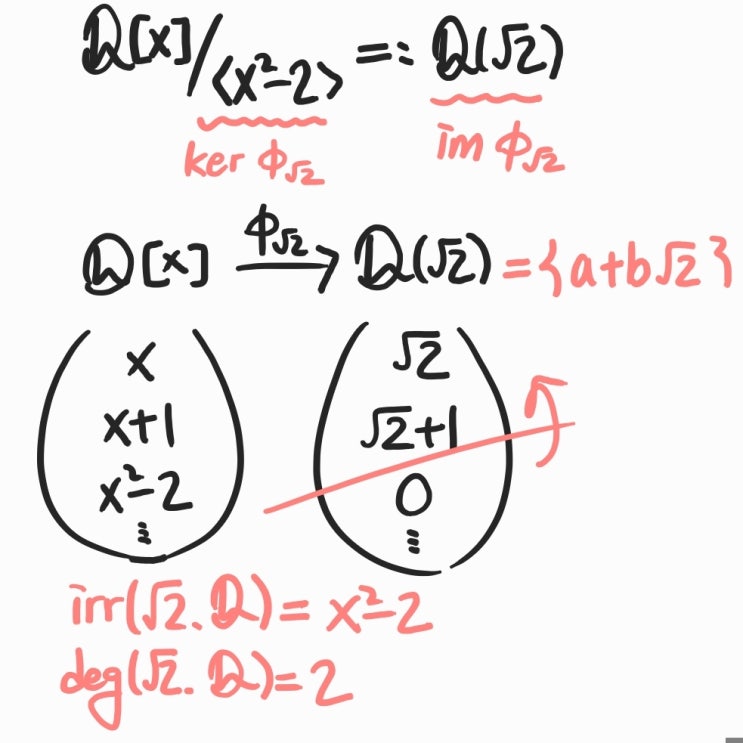 ℚ[x]/<x²-2> =: ℚ(√2)
ker ϕ√2 im ϕ√2
ℚ[x] ϕ√2→ ℚ(√2) = {a+b√2}
x √2
x+1 √2+1
x²-2 0
⋮ ⋮
irr(√2. ℚ) = x²-2
deg(√2. ℚ) = 2